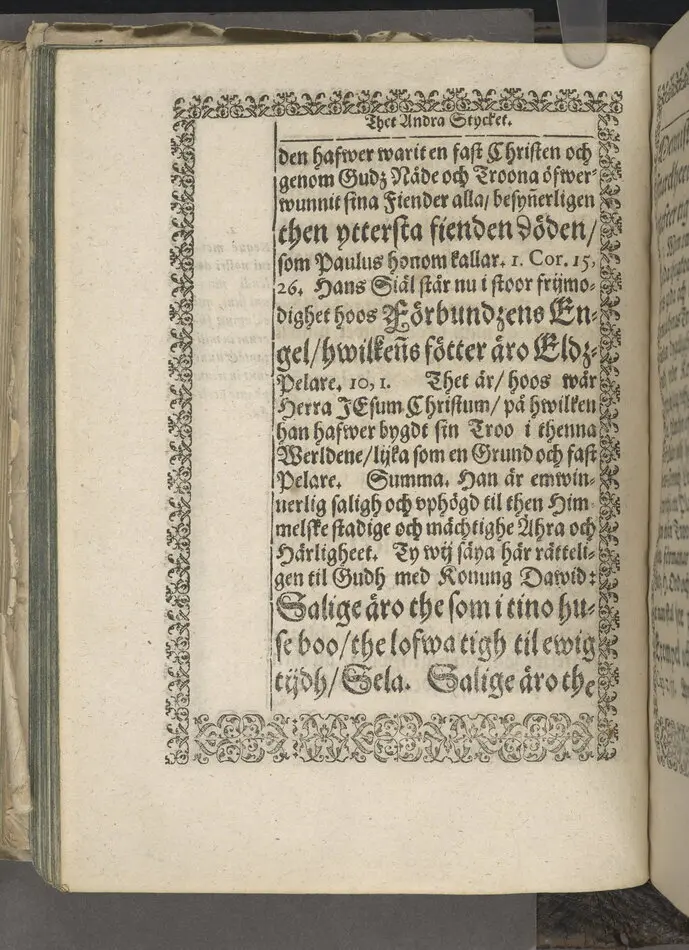 Thet Andra Stycket.
den hafwer warit en fast Christen och
genom Gudz Nåde och Troona öfwer-
wunnit sina Fiender alla/ besyñerligen
then yttersta fienden Döden/
som Paulus honom kallar. 1. Cor. 15,
26. Hans Siäl står nu i stoor frijmo-
dighet hoos Förbundzens En-
gel/hwilkens̃ fötter äro Eldz-
Pelare, 10, 1. Thet är/ hoos wår
Herra JEsum Christum/ på hwilken
han hafwer bygdt sin Troo i thenna
Werldene/lijka som en Grund och fast
Pelare. Summa. Han är emwin-
nerlig saligh och vphögd til then Him
melske stadige och mächtighe Ähra och
Härligheet. Ty wij säya här rätteli-
gen til Gudh med Konung Dawid:
Salige äro the som i tino hu-
se boo/the lofwa tigh til ewig
tijdh/Sela. Salige äro the